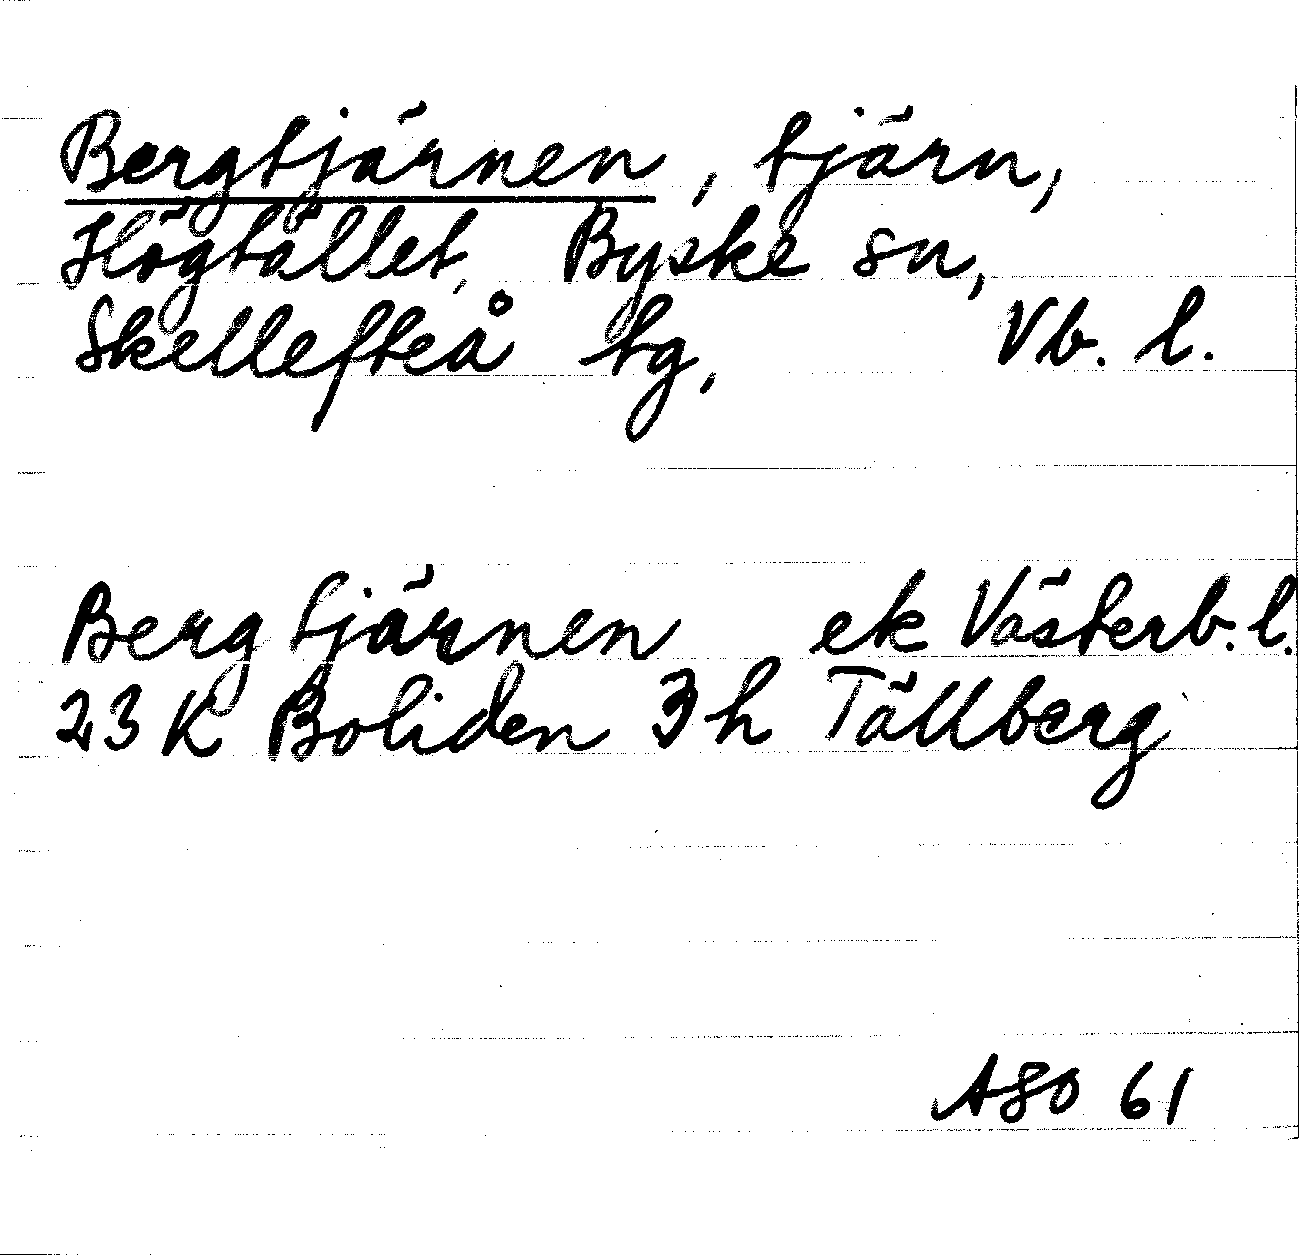 Bergtjärnen, tjärn,
Högtället, Byske sn,
Skellefteå tg, Vb. l.
Bergtjärnen ek Västerb. l.
23 K Boliden 3 h Tällberg
ASO 61